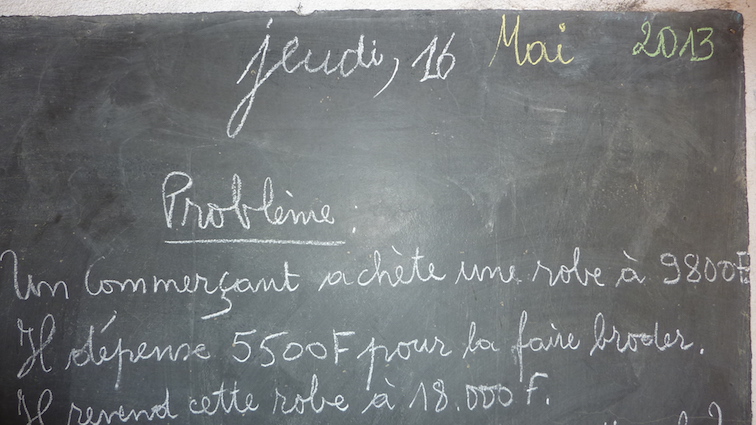 jeudi, 16 Mai 2013
Problème:
Un commerçant achète une robe à 9800F
Il dépense 5500F pour la faire broder.
Il revend cette robe à 18.000F.